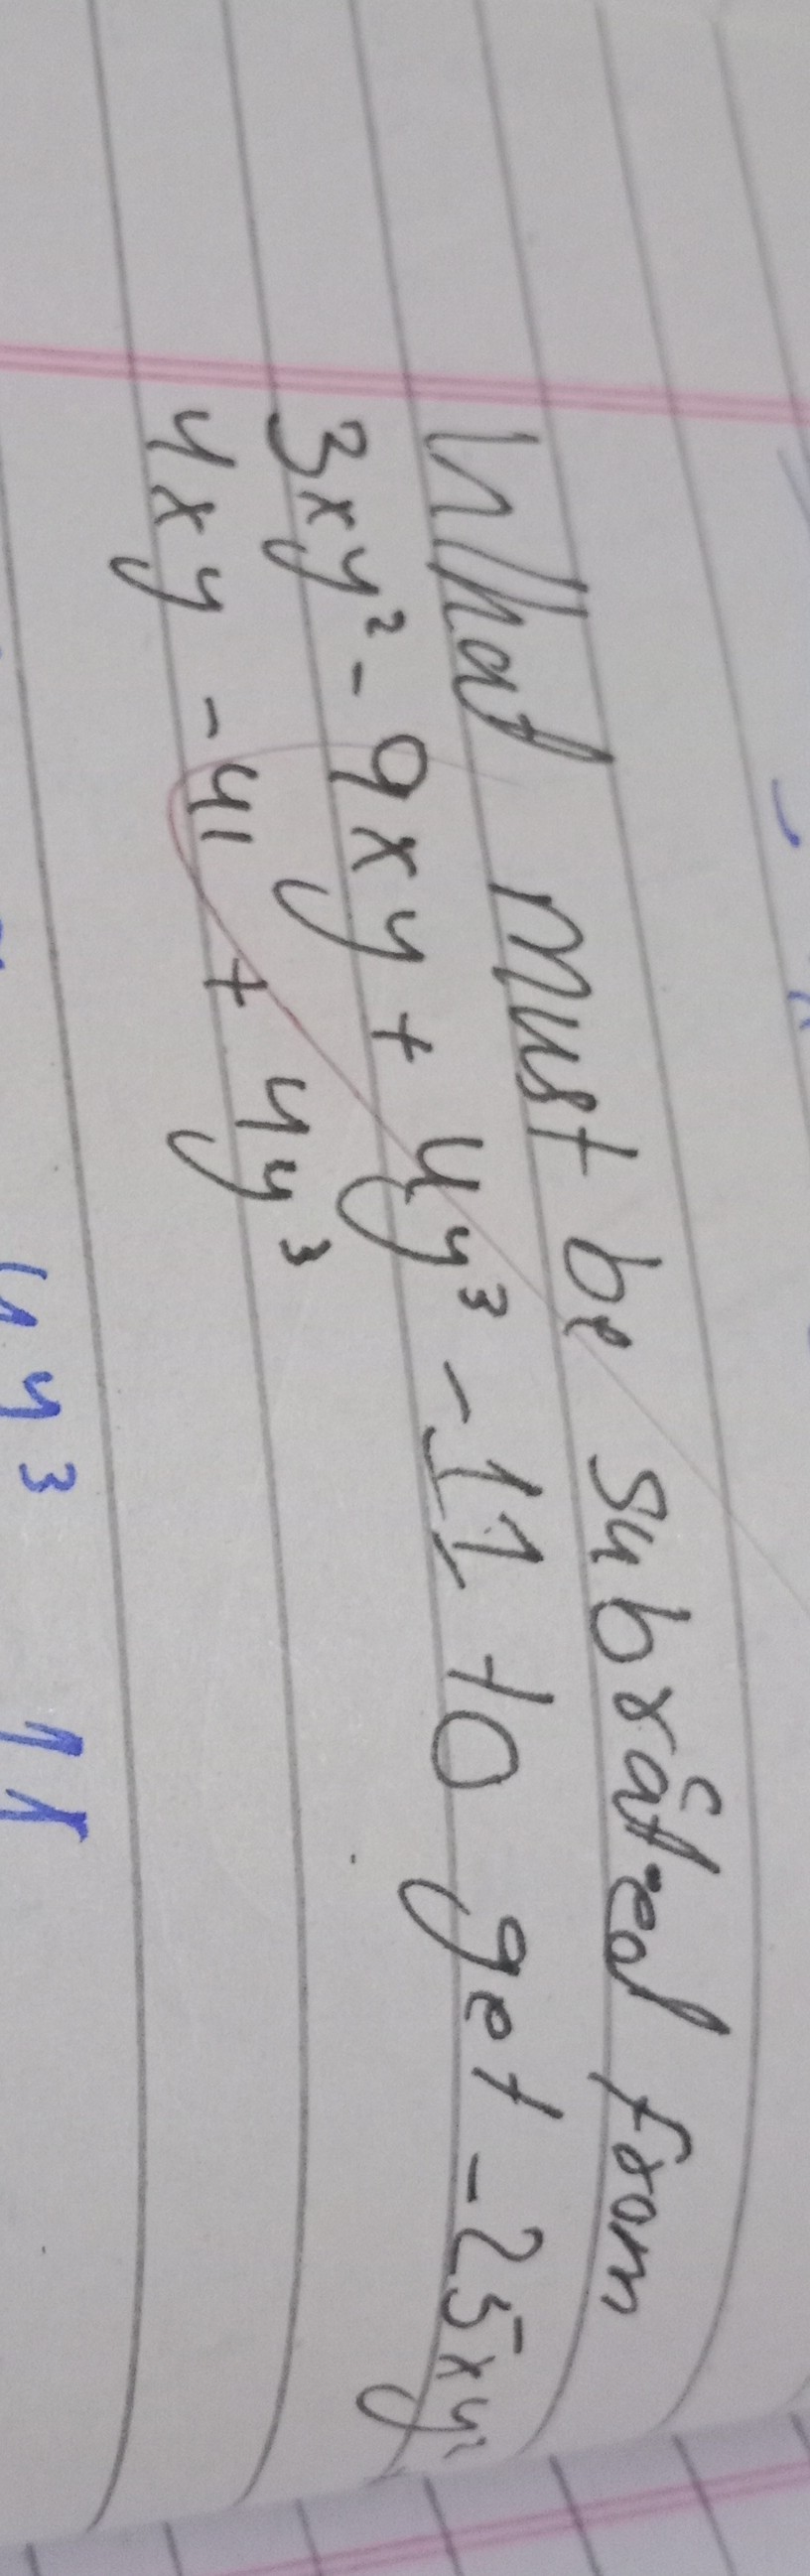 What must be subrated from
3xy² - 9xy + 4y³ - 11 to get - 25xy²
4xy - 41 + 4y³
4y³ 11